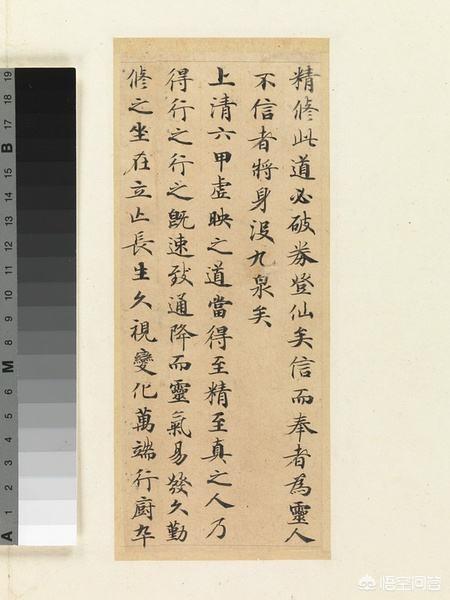 精修此道必破券登仙矣信而奉者為靈人
不信者將身沒九泉矣
上清六甲虛映之道當得至精至真之人乃
得行之行之既速致通降而靈氣易發久勤
修之坐在立亡長生久視變化萬端行廚卒
A 1 2 3 4 5 6 M 8 9 10 11 12 13 14 15 B 17 18 19
悟空问答